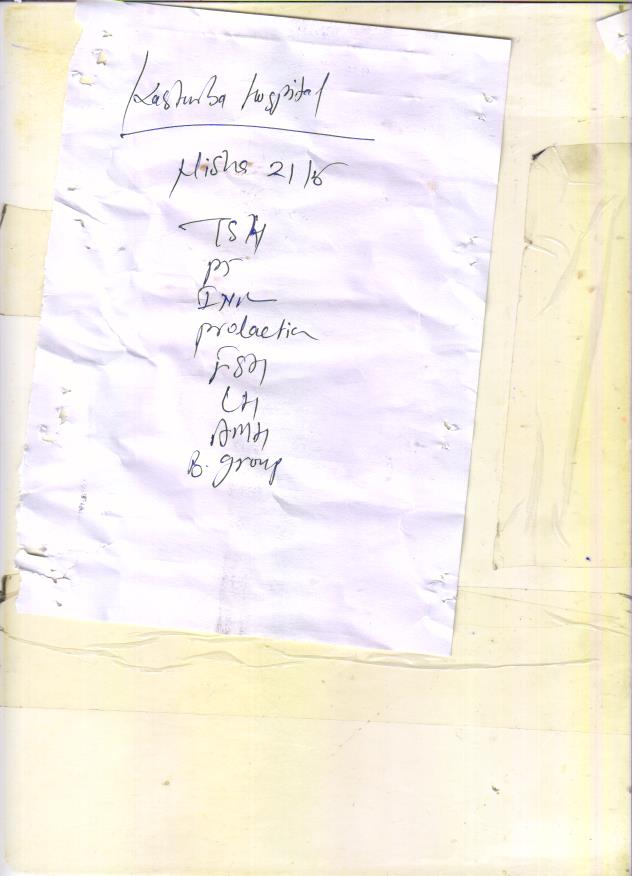 Kasturba hospital
Nisha 21/F
TSH
PT
INR
prolactin
FSH
LH
AMH
B. group